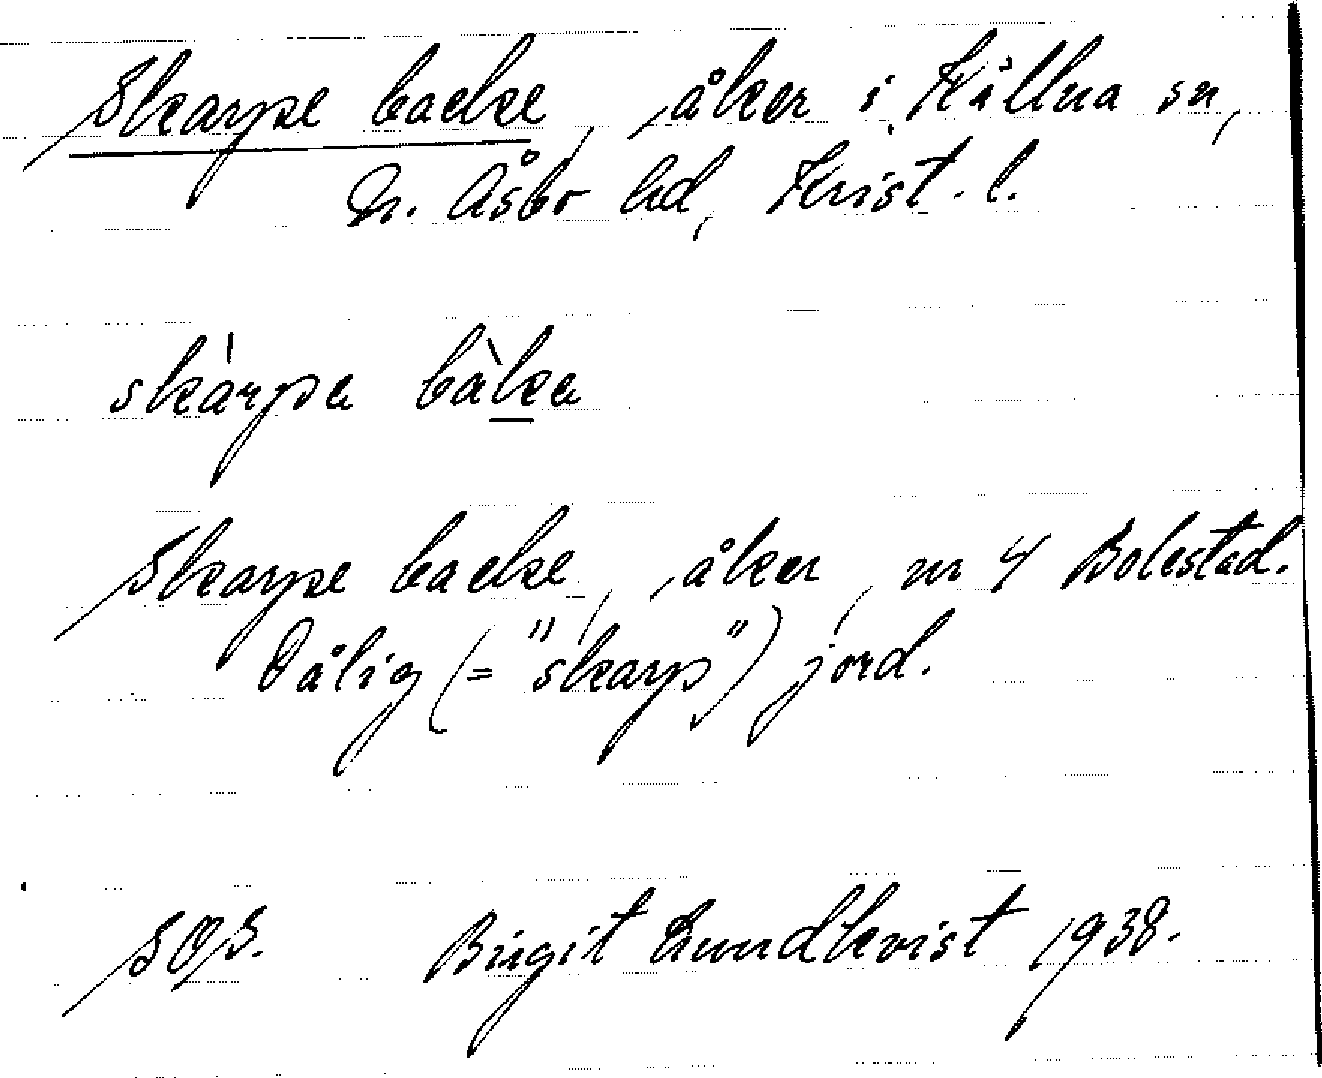 Skarpe backe, åker i Källna sn,
N. Åsbo hd, Krist. l.
skárpa bàka
Skarpe backe, åker, nr 4 Bolestad.
Dålig (= "skarp") jord.
SOS. Birgit Lundkvist 1938.